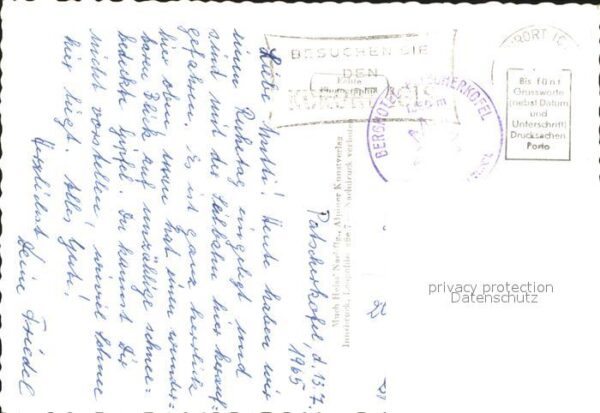 Patscherkofel, d. 13.7.
1965
Liebe Mutti! Heute haben wir
einen Ruhetag eingelegt und
sind mit der Seilbahn hier herauf
gefahren. Es ist ganz herrlich
hier oben, man hat einen wunder-
baren Blick auf unzählige schnee-
bedeckte Gipfel. Du kannst Dir
nicht vorstellen, wieviel Schnee
hier liegt. Alles Gute!
Herzlichst
Deine Friedel
BESUCHEN SIE
DEN
BERGHOTEL PATSCHERKOFEL
Bis fünf
Grussworte
(nebst Datum
und
Unterschrift)
Drucksachen
Porto
Much Heiss Nachfg., Alpiner Kunstverlag
Innsbruck, Nachdruck verboten
privacy protection
Datenschutz